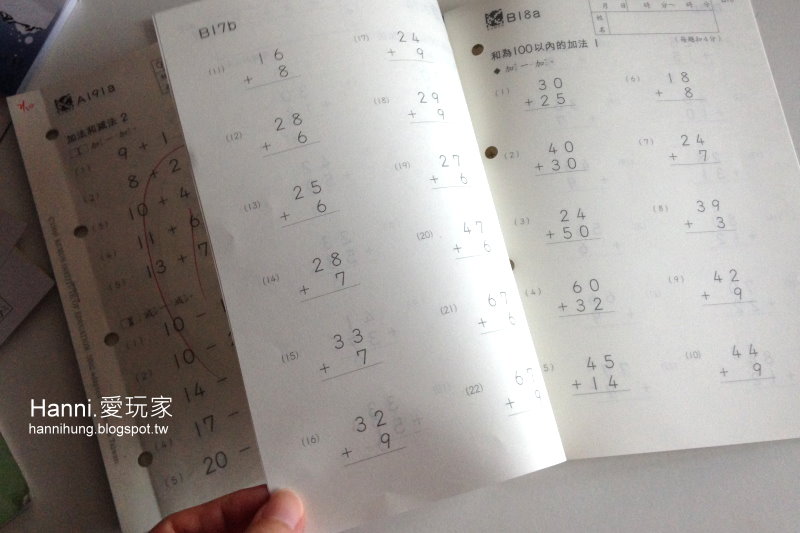 A191a
加法和減法 2
(1)
9 + 1
(2)
8 + 2
(3)
10 + 4
(4)
11 + 6
(5)
13 + 7
(1)
10 -
(2)
10 -
14 -
(4)
17 -
(5)
20 -
B17b
(11)
16
+ 8
(12)
28
+ 6
(13)
25
+ 6
(14)
28
+ 7
(15)
33
+ 7
(16)
32
+ 9
(17)
24
+ 9
(18)
29
+ 9
(19)
27
+ 6
(20)
47
+ 6
(21)
67
+ 6
(22)
67
+ 9
B18a
月 日 時 分 ~ 時 分
姓名
和為100以內的加法 1
(每題扣4分)
(1)
30
+ 25
(2)
40
+ 30
(3)
24
+ 50
(4)
60
+ 32
5)
45
+ 14
(6)
18
+ 8
(7)
24
+ 7
(8)
39
+ 3
(9)
42
+ 9
(10)
44
+ 9
Hanni.愛玩家
hannihung.blogspot.tw